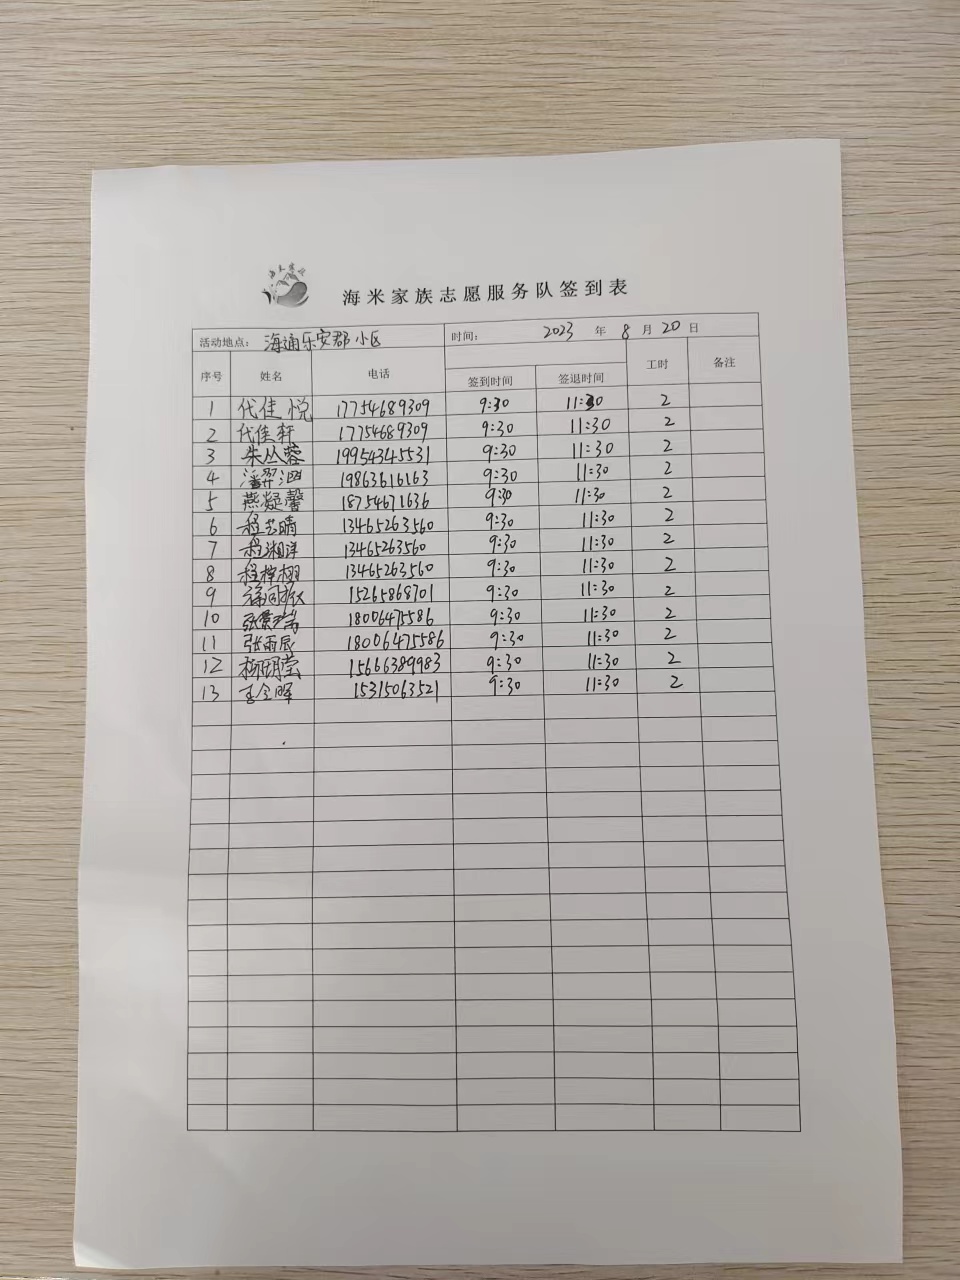 海米家族志愿服务队签到表
活动地点： 海通乐安郡小区 时间： 2023 年 8 月 20 日
序号 姓名 电话 签到时间 签退时间 工时 备注
1 代佳悦 17754689309 9:30 11:30 2
2 代佳轩 17754689309 9:30 11:30 2
3 朱丛蓉 19954345531 9:30 11:30 2
4 潘羿泗 19863616163 9:30 11:30 2
5 燕凝馨 18754671636 9:30 11:30 2
6 程艺晴 13465263560 9:30 11:30 2
7 程湘洋 13465263560 9:30 11:30 2
8 程梓栩 13465263560 9:30 11:30 2
9 15265868701 9:30 11:30 2
10 张景瑞 18006475586 9:30 11:30 2
11 张雨辰 18006475586 9:30 11:30 2
12 杨明莹 15666389983 9:30 11:30 2
13 李全晖 15315063521 9:30 11:30 2